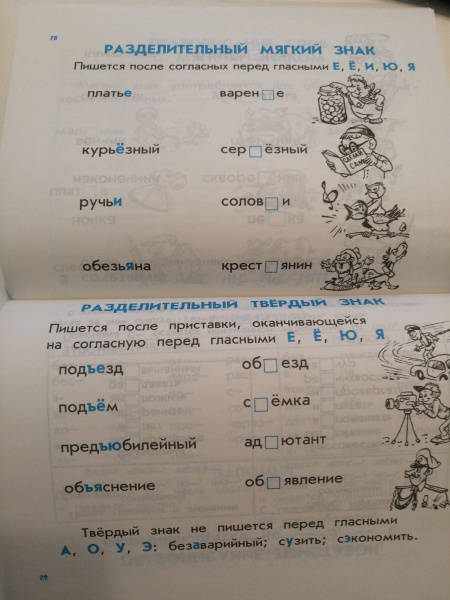 78
РАЗДЕЛИТЕЛЬНЫЙ МЯГКИЙ ЗНАК
Пишется после согласных перед гласными Е, Ё, И, Ю, Я
платье варен□е
курьёзный сер□ёзный
ручьи солов□и
обезьяна крест□янин
РАЗДЕЛИТЕЛЬНЫЙ ТВЁРДЫЙ ЗНАК
Пишется после приставки, оканчивающейся
на согласную перед гласными Е, Ё, Ю, Я
подъезд об□езд
подъём с□ёмка
предъюбилейный ад□ютант
объяснение об□явление
Твёрдый знак не пишется перед гласными
А, О, У, Э: безаварийный; сузить; сэкономить.
79